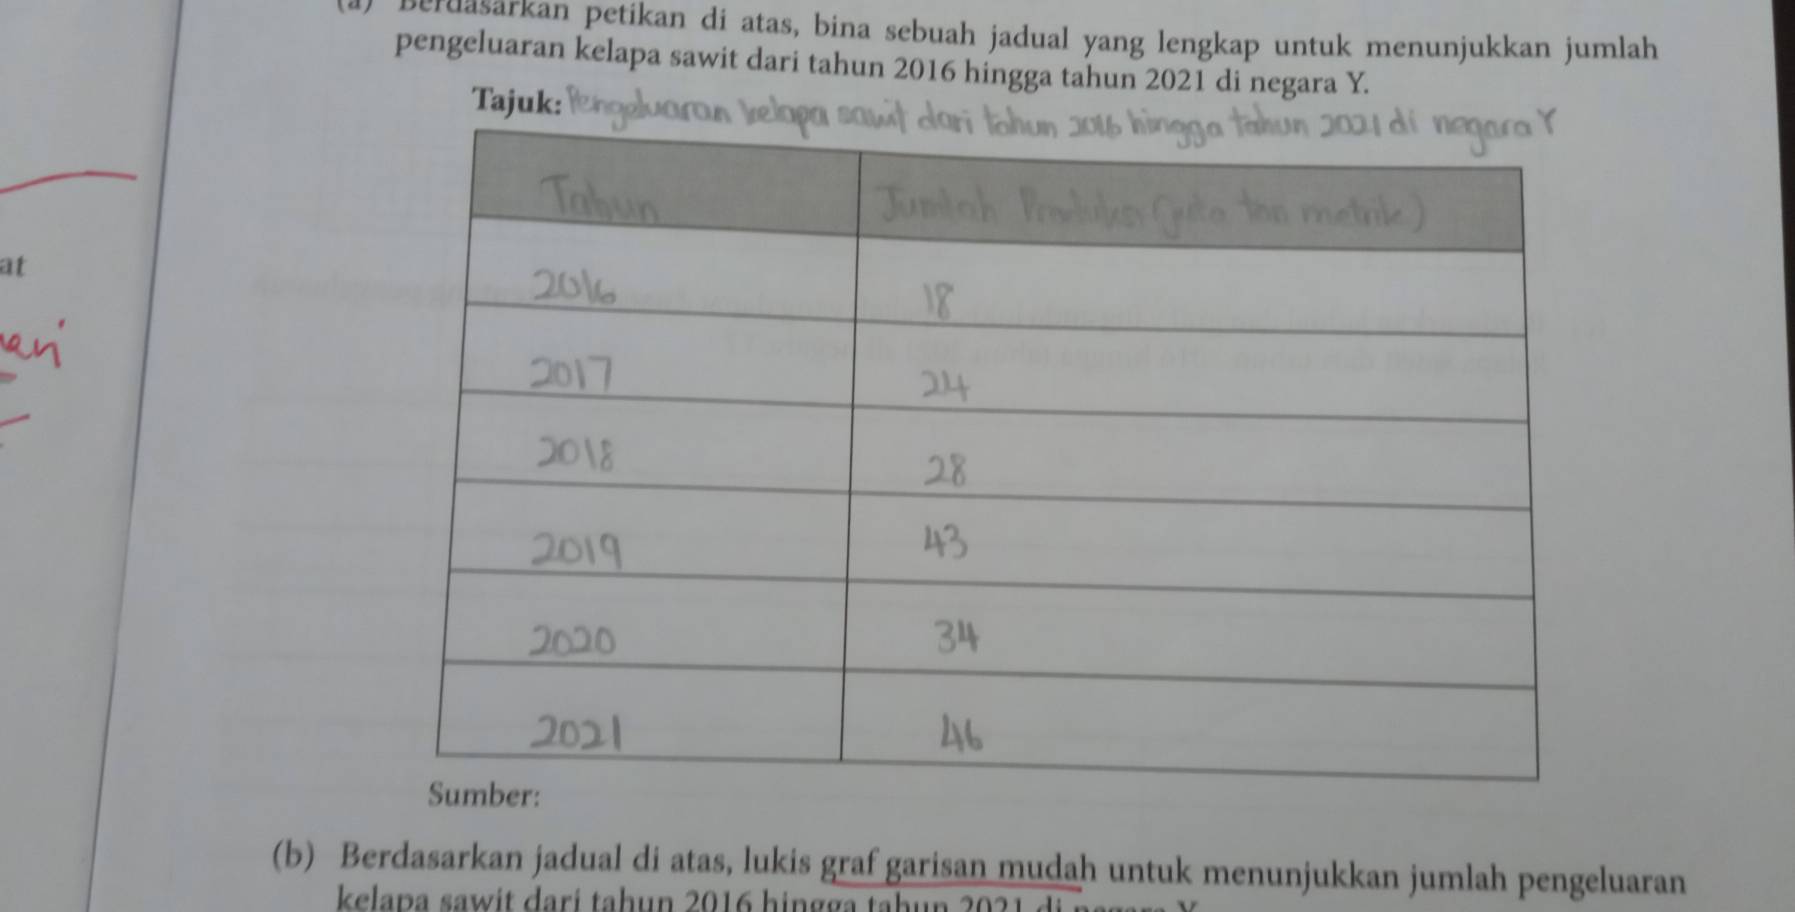 (a) Berdasarkan petikan di atas, bina sebuah jadual yang lengkap untuk menunjukkan jumlah
pengeluaran kelapa sawit dari tahun 2016 hingga tahun 2021 di negara Y.
Tajuk: Pengeluaran kelapa sawit dari tahun 2016 hingga tahun 2021 di negara Y
Tahun Jumlah Produksi (juta tan metrik)
at
2016 18
2017 24
2018 28
2019 43
2020 34
2021 46
Sumber:
(b) Berdasarkan jadual di atas, lukis graf garisan mudah untuk menunjukkan jumlah pengeluaran
kelapa sawit dari tahun 2016 hingga tahun 2021 di negara Y